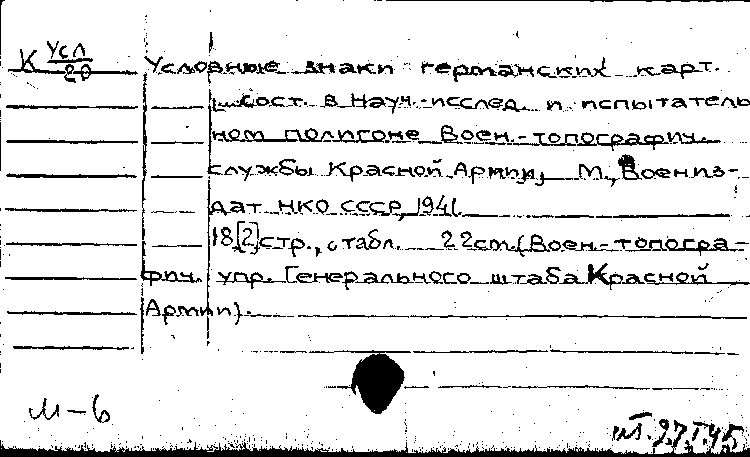 К Усл
20
Условные знаки германских карт.
Сост. в Науч.-исслед. и испытатель
ном полигоне Воен.-топографич.
службы Красной Армии, М., Воениз-
дат НКО СССР, 1941.
18,[2] стр., с табл. 22 cm. (Воен.-топогра-
фич. упр. Генерального штаба Красной
Армии).
М-6
27.I.45